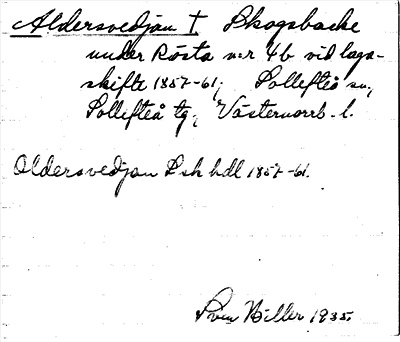 Aldersvedjan † Skogsbacke
under Rösta n:r 4b vid laga
skifte 1857-61, Sollefteå sn,
Sollefteå tg, Västernorrl. l.
Aldersvedjan Lsk hdl 1857-61.
Sven Hiller 1935.